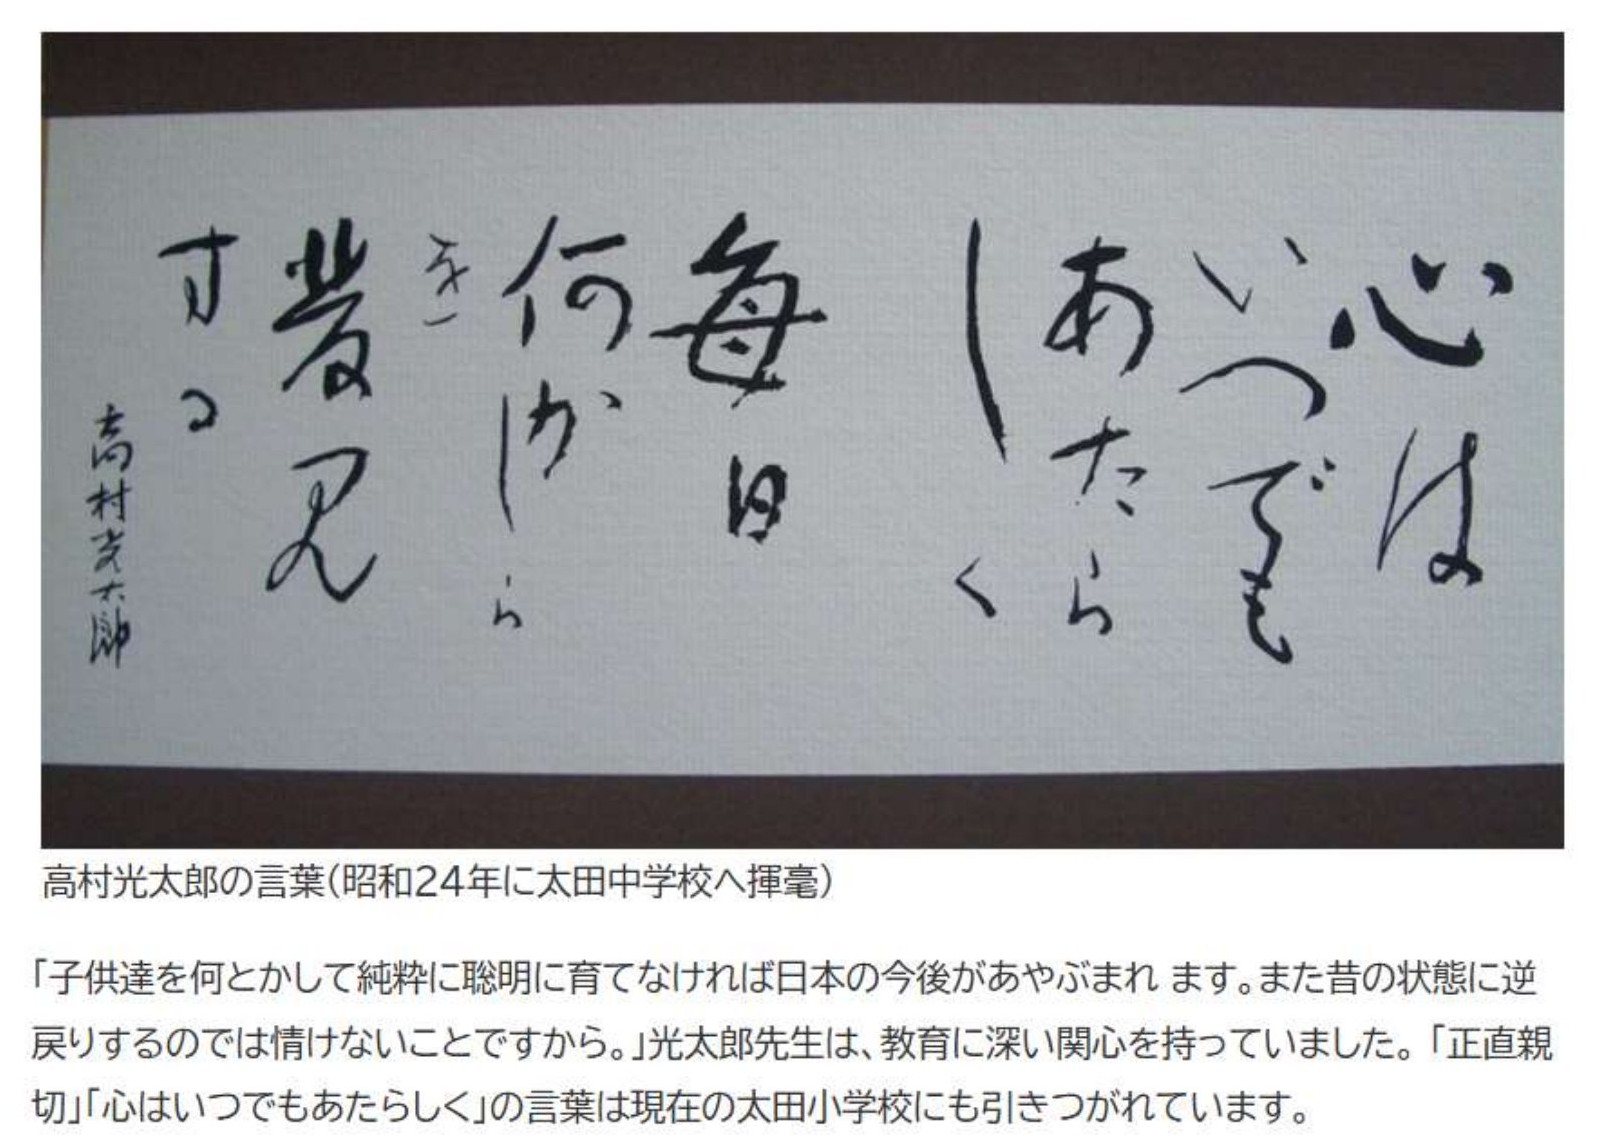 心は
いつでも
あたら
しく
毎日
何かしら
を
発見
する
高村光太郎
高村光太郎の言葉(昭和24年に太田中学校へ揮毫)
「子供達を何とかして純粋に聡明に育てなければ日本の今後があやぶまれ ます。また昔の状態に逆
戻りするのでは情けないことですから。」光太郎先生は、教育に深い関心を持っていました。「正直親
切」「心はいつでもあたらしく」の言葉は現在の太田小学校にも引きつがれています。